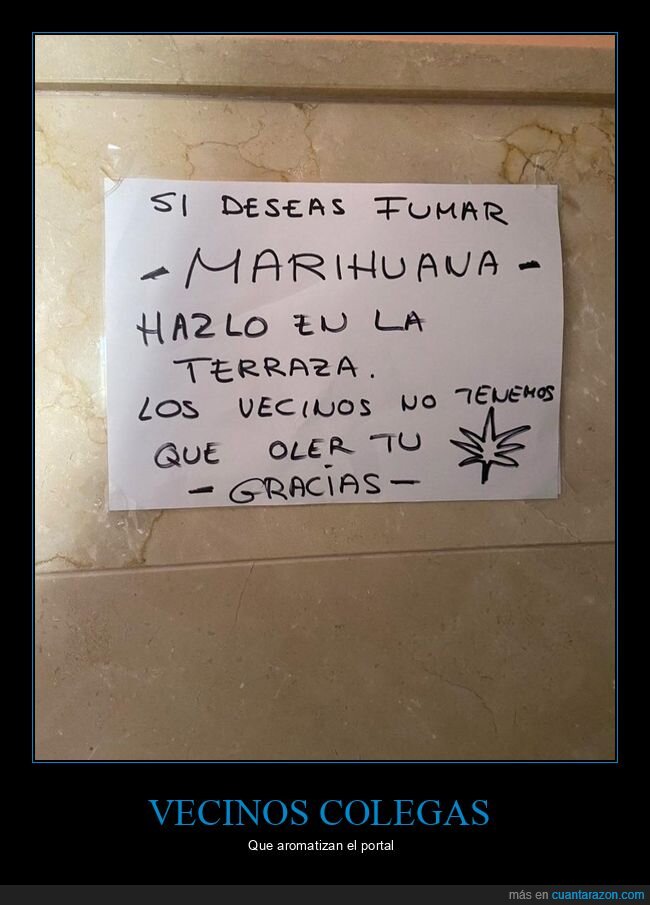 SI DESEAS FUMAR
- MARIHUANA -
HAZLO EN LA
TERRAZA.
LOS VECINOS NO TENEMOS
QUE OLER TU
- GRACIAS -
VECINOS COLEGAS
Que aromatizan el portal
más en cuantarazon.com